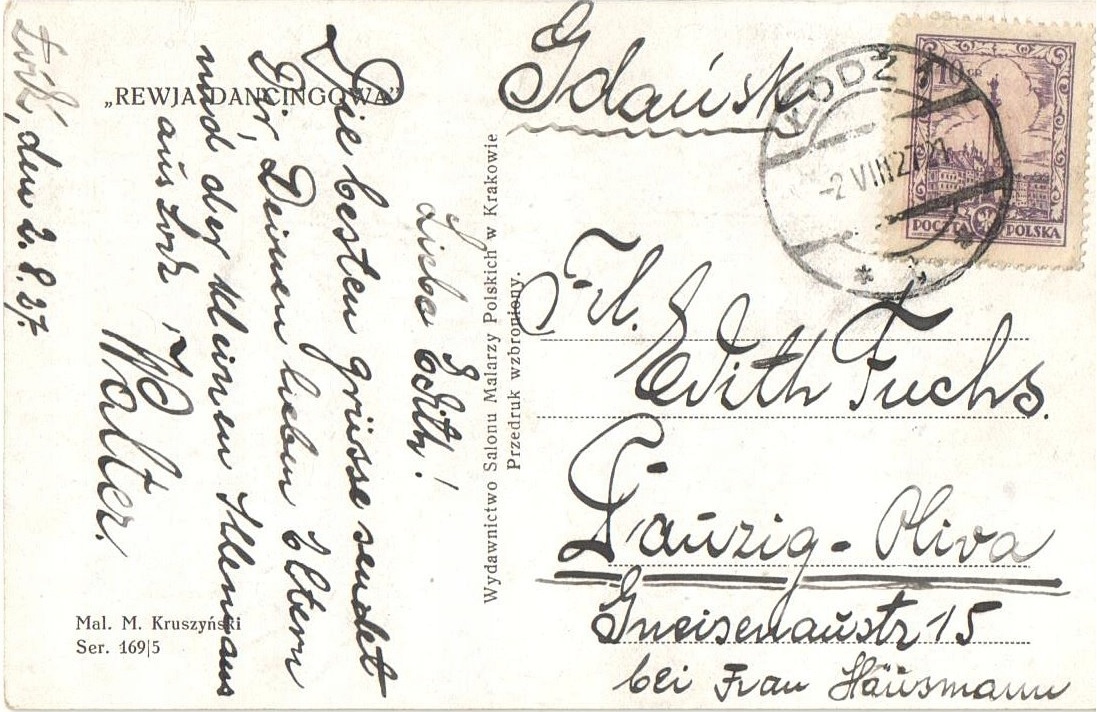 „REWJA DANCINGOWA"
Lodz, den 2. 8. 27.
Liebe Edith!
Die besten grüsse sendet
Dir, Deinen lieben Eltern
und der kleinen
aus Lodz
Walter.
Mal. M. Kruszyński
Ser. 169|5
Wydawnictwo Salonu Malarzy Polskich w Krakowie
Przedruk wzbroniony.
Gdańsk
ŁÓDŹ 1
-2 VIII 27
10 GR
POCZTA POLSKA
Frl.
Edith Fuchs.
Danzig - Oliva
Gneisenaustr 15
bei Frau Häusmann